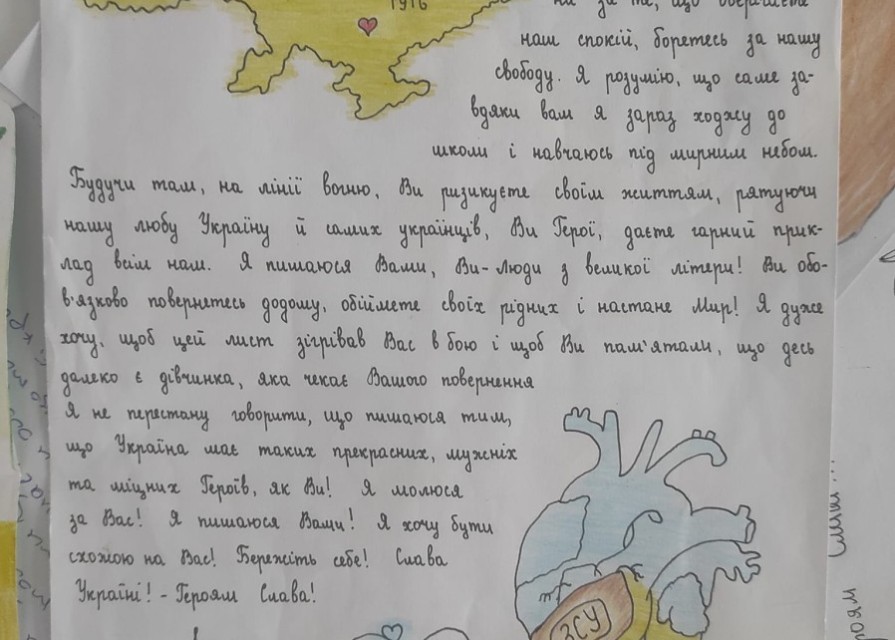 за те, що
наш спокій, боретесь за нашу
свободу. Я розумію, що саме за-
вдяки вам я зараз ходжу до
школи і навчаюсь під мирним небом.
Будучи там, на лінії вогню, Ви ризикуєте своїм життям, рятуючи
нашу любу Україну й самих українців, Ви Герої, даєте гарний прик-
лад всім нам. Я пишаюся Вами, Ви-люди з великої літери! Ви обо-
в'язково повернетесь додому, обіймете своїх рідних і настане Мир! Я дуже
хочу, щоб цей лист зігрівав Вас в бою і щоб Ви пам'ятали, що десь
далеко є дівчинка, яка чекає Вашого повернення
Я не перестану говорити, що пишаюся тим,
що Україна має таких прекрасних, мужніх
та міцних Героїв, як Ви! Я молюся
за Вас! Я пишаюся Вами! Я хочу бути
схожою на Вас! Бережіть себе! Слава
Україні! - Героям Слава!
ЗСУ